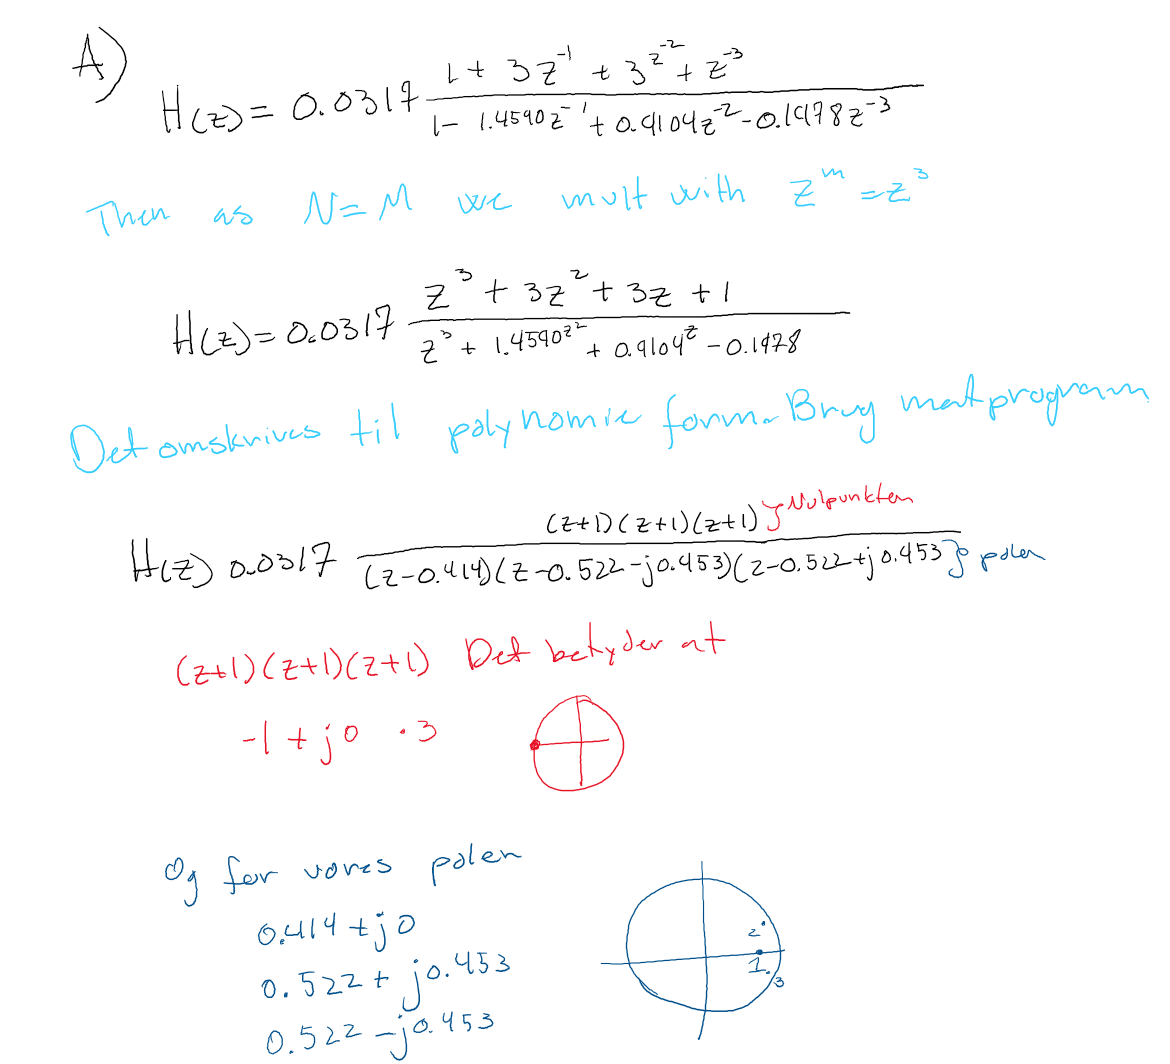 A)
H(z) = 0.0317 (1 + 3z^-1 + 3z^-2 + z^-3) / (1 - 1.4590z^-1 + 0.9104z^-2 - 0.1978z^-3)
Then as N=M we mult with z^m = z^3
H(z) = 0.0317 (z^3 + 3z^2 + 3z + 1) / (z^3 + 1.4590z^2 + 0.9104z - 0.1978)
Det omskrives til polynomie form. Brug matprogram
H(z) 0.0317 (z+1)(z+1)(z+1) } Nulpunkter / (z-0.414)(z-0.522-j0.453)(z-0.522+j0.453 } poler
(z+1)(z+1)(z+1) Det betyder at
-1 + j0 · 3
Og for vores poler
0.414 + j0
0.522 + j0.453
0.522 - j0.453
2
1
3